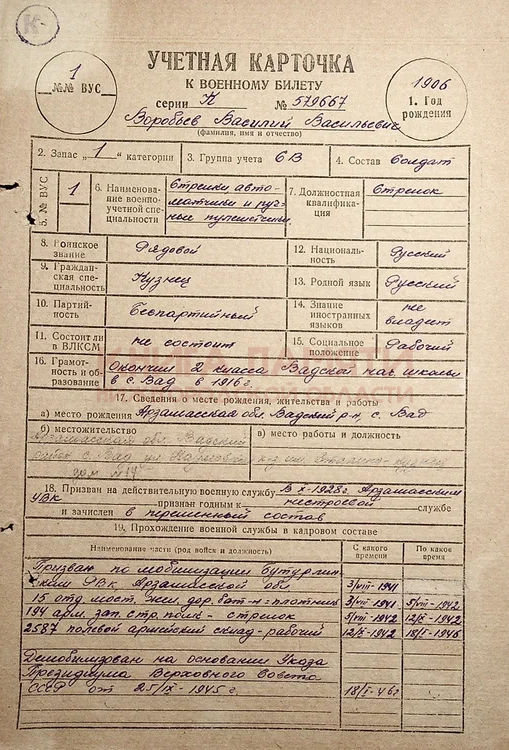 К-
УЧЕТНАЯ КАРТОЧКА
К ВОЕННОМУ БИЛЕТУ
серии К № 579667
1
№№ ВУС
1906
1. Год
рождения
Воробьев Василий Васильевич
(фамилия, имя и отчество)
2. Запас „1“ категории
3. Группа учета 6В
4. Состав Солдат
5. № ВУС
1
6. Наименование военно-учетной специальности
Стрелки автоматчики и ручные пулеметчики
7. Должностная квалификация
Стрелок
8. Воинское звание
Рядовой
12. Национальность
Русский
9. Гражданская специальность
Кузнец
13. Родной язык
Русский
10. Партийность
Беспартийный
14. Знание иностранных языков
не владеет
11. Состоит ли в ВЛКСМ
не состоит
15. Социальное положение
Рабочий
16. Грамотность и образование
Окончил 2 класса Вадской нач. школы
в с. Вад в 1916 г.
КНИГА ПАМЯТИ
17. Сведения о месте рождения, жительства и работы
а) место рождения Арзамасская обл. Вадский р-н, с. Вад
б) местожительство
Арзамасская обл. Вадский
с. Вад ул.
дом №14
в) место работы и должность
кузнец
18. Призван на действительную военную службу В X-1928 г. Арзамасским
УВК признан годным к нестроевой службе
и зачислен в переменный состав
19. Прохождение военной службы в кадровом составе
Наименование части (род войск и должность)
С какого времени
По какое время
Призван по мобилизации Бутурлинским РВК Арзамасской обл 3/VIII-1941
15 отд. мост. жел. дор. бат-н - плотник 3/VIII-1941 5/VIII-1942
194 арм. зап. стр. полк - стрелок 5/VIII-1942 12/X-1942
2587 полевой армейский склад - рабочий 12/X-1942 18/I-1946
Демобилизован на основании Указа
Президиума Верховного Совета
СССР от 25/IX-1945 г. 18/I-46 г